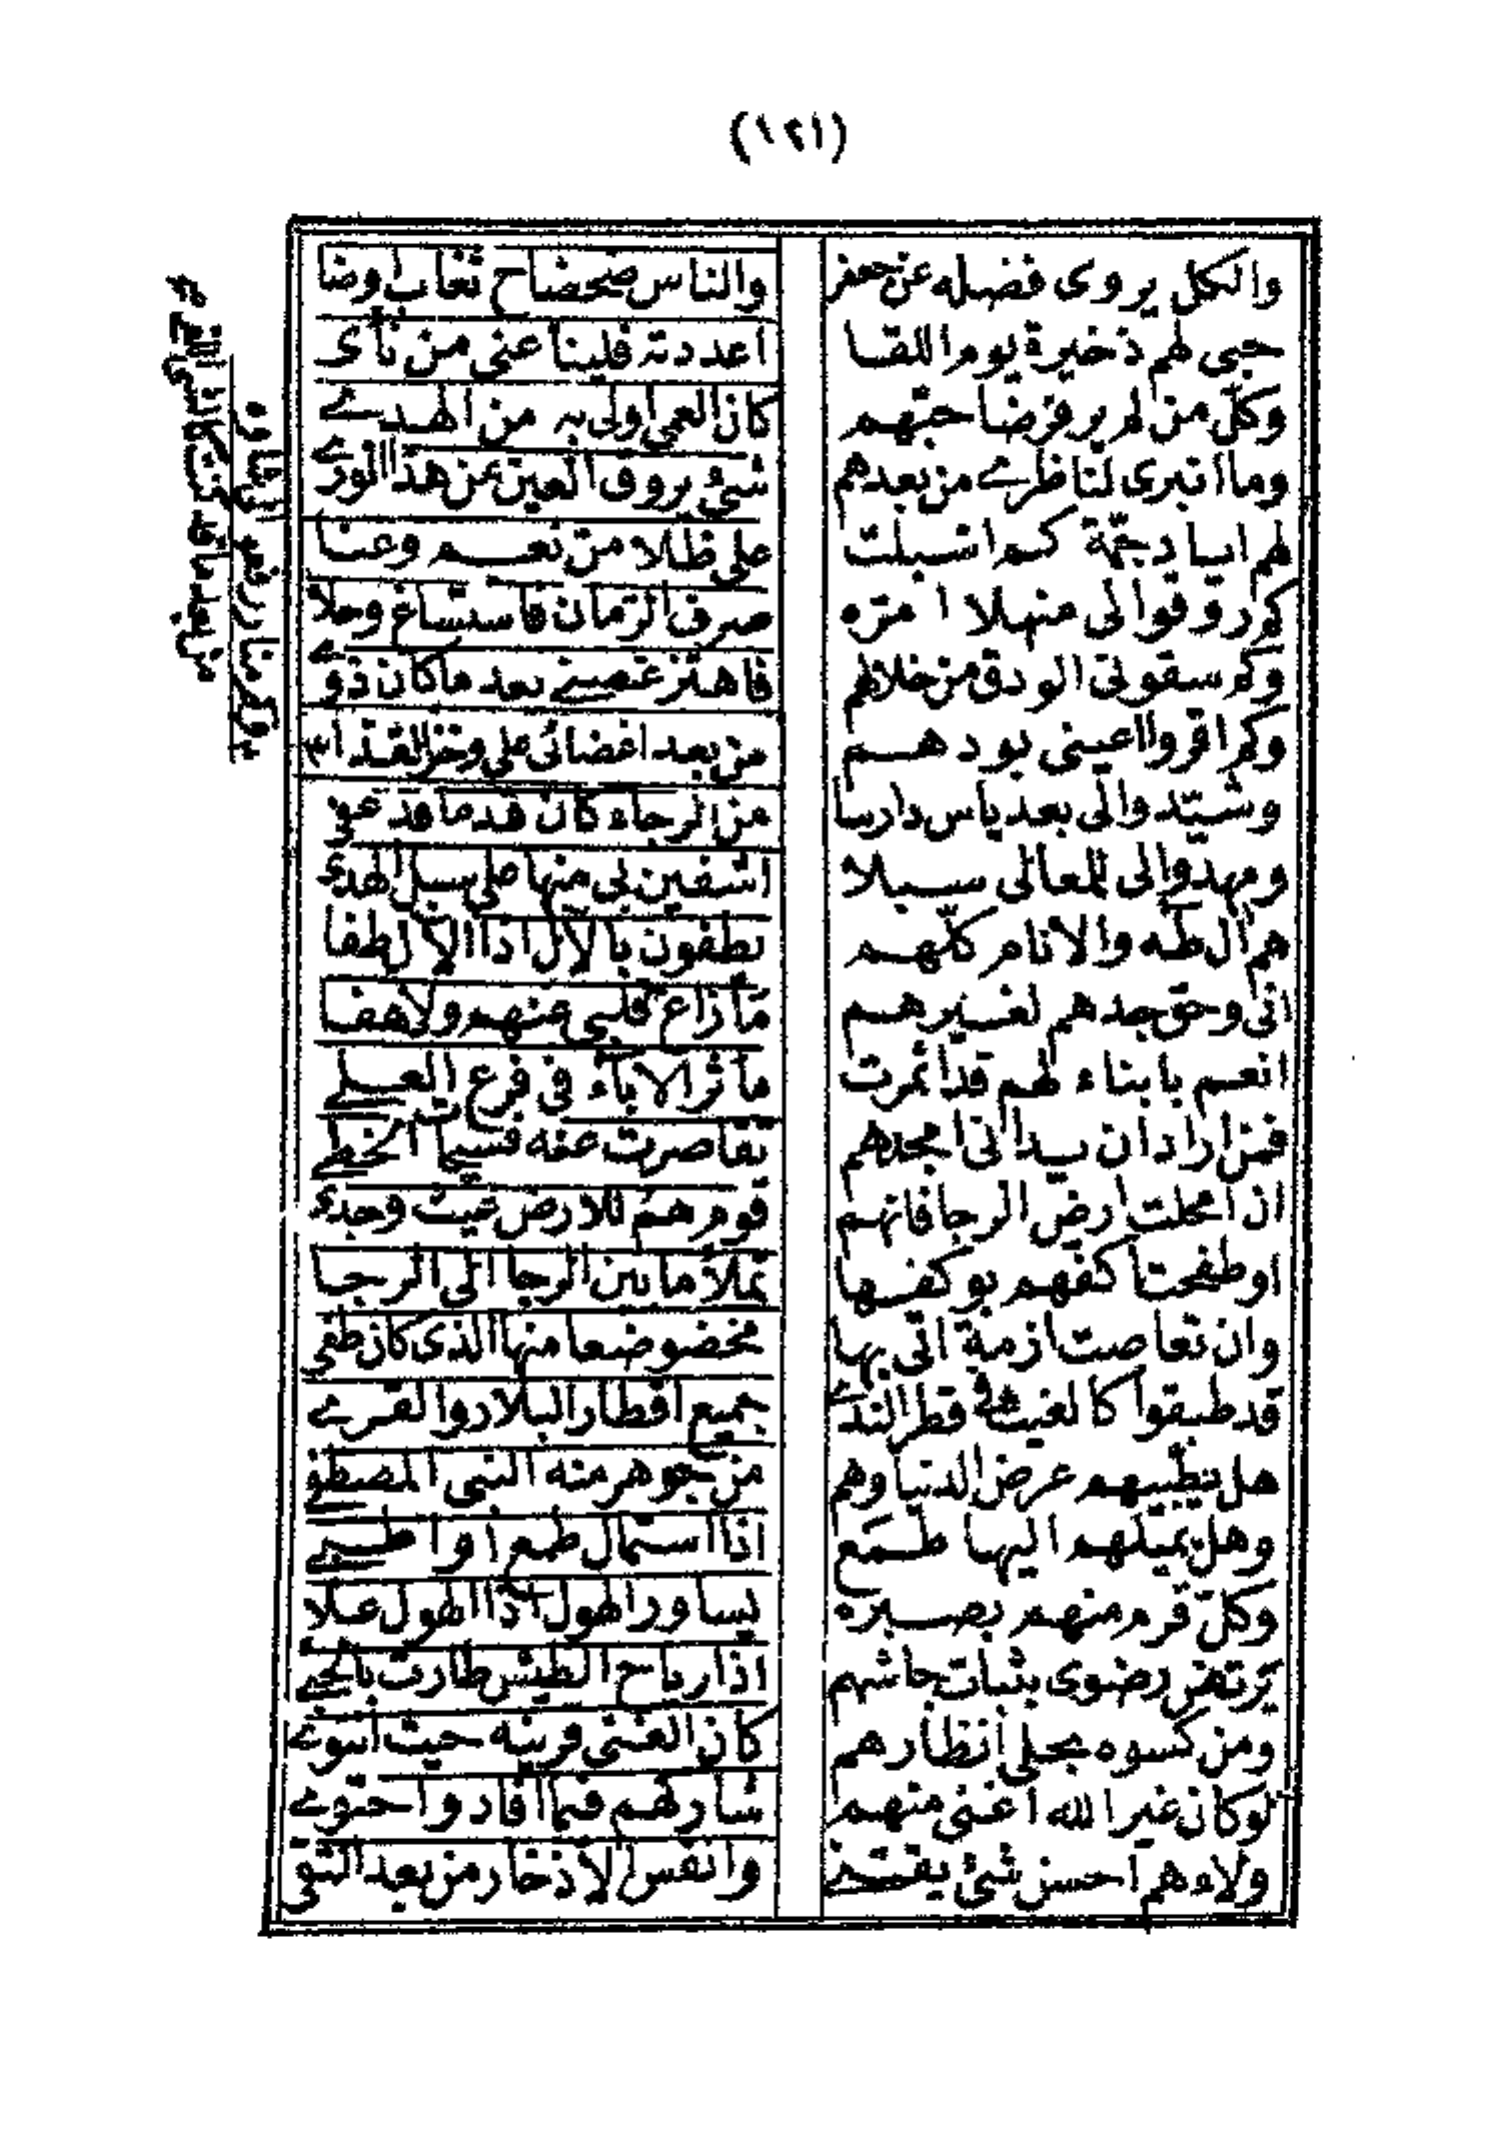 (١٢١)
والكل يروى فضله عن جعفر والناس ضحضاح ثغاب اوضا
حبى لهم ذخيرة يوم اللقا اعددته فلينأ عنى من نأى
وكل من لم ير فرضا حبهم كان العمى اولى به من الهدى
وما انبرى لناظرى من بعدهم شئ يروق العين من هذا الورى
لهم اياد جمة كم اسبلت على ظلا من نعم وعنا
كم روقوا لى منهلا امره صرف الزمان فاستساغ وحلا
وكم سقونى الودق من خلالهم فاهتز غصنى بعد ما كان ذوى
وكم اقروا اعينى بودهم من بعد اغضائى على وخز القذا
وشيدوا لى بعد ياس دارسا من الرجاء كان قدما قد عفى
ومهدوا لى للمعالى سبلا اشفين بى منها على سبل الهدى
هم آل طه والانام كلهم يطفون بالآل اذا الآل طفا
انى وحق جدهم لغيرهم ما زاغ قلبى عنهم ولا هفا
انعم بابناء لهم قد اثمرت مآثر الاباء فى فرع العلى
فمن اراد ان يدانى مجدهم تقاصرت عنه فسيحات الخطى
ان امحلت ارض الرجا فانهم قوم هم للارض غيث وجدى
او طفحت اكفهم بوكفها تملأ ما بين الرجا الى الرجا
وان تعاصت ازمة اتى بها مخضوضعا منها الذى كان طغى
قد طبقوا كالغيث فى قطر الندى جميع اقطار البلاد والقرى
هل يطبيهم عرض الدنيا وهم من جوهر منه النبى المصطفى
وهل يميلهم اليها طمع اذا استمال طمع او اطبى
وكل قرم منهم بصبره يساور الهول اذا الهول علا
يرتهن رضوى بثبات جاشهم اذا رياح الطيش طارت بالحبى
ومن كسوه بجلى انظارهم كان الغنى قرينه حيث انتوى
لو كان غير الله اغنى منهم شاركهم فيما افادوا حتوى
ولاءهم احسن شئ يقتنى وانفس الاذخار من بعد التقى
وكم منار رفعوا
من بعد ما قد كنت كالشئ اللقى